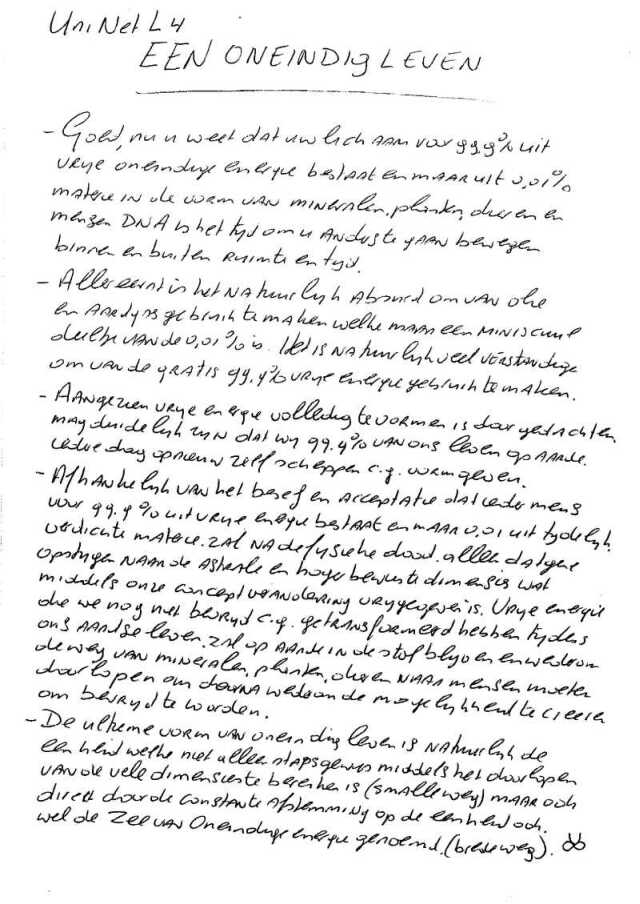 UniNet L4
EEN ONEINDIG LEVEN
- Goed, nu u weet dat uw lichaam voor 99,9% uit
vrije oneindige energie bestaat en maar uit 0,01%
materie in de vorm van mineralen, planten, dieren en
mensen DNA is het tijd om u anders te gaan bewegen
binnen en buiten ruimte en tijd.
- Allereerst is het natuurlijk absurd om van olie
en aardgas gebruik te maken welke maar een miniscuul
deeltje van de 0,01% is. Het is natuurlijk veel verstandiger
om van de gratis 99,9% vrije energie gebruik te maken.
- Aangezien vrije energie volledig te vormen is door gedachten
mag duidelijk zijn dat wij 99,9% van ons leven op aarde
iedere dag opnieuw zelf scheppen c.q. vormgeven.
- Afhankelijk van het besef en acceptatie dat ieder mens
voor 99,9% uit vrije energie bestaat en maar 0,01 uit tijdelijk
verdichte materie, zal na de fysieke dood, alleen datgene
opstijgen naar de astrale en hoger bewuste dimensies wat
middels onze conceptverandering vrijgegeven is. Vrije energie
die we nog niet bevrijd c.q. getransformeerd hebben tijdens
ons aardse leven, zal op aarde in de stof blijven en wederom
de weg van mineralen, planten, dieren naar mensen moeten
doorlopen om daarna wederom de mogelijkheid te creëren
om bevrijd te worden.
- De ultieme vorm van oneindig leven is natuurlijk de
eenheid welke niet alleen stapsgewijs middels het doorlopen
van de vele dimensies te bereiken is (smalle weg) maar ook
direct door de constante afstemming op de eenheid ook
wel de Zee van Oneindige energie genoemd. (brede weg).